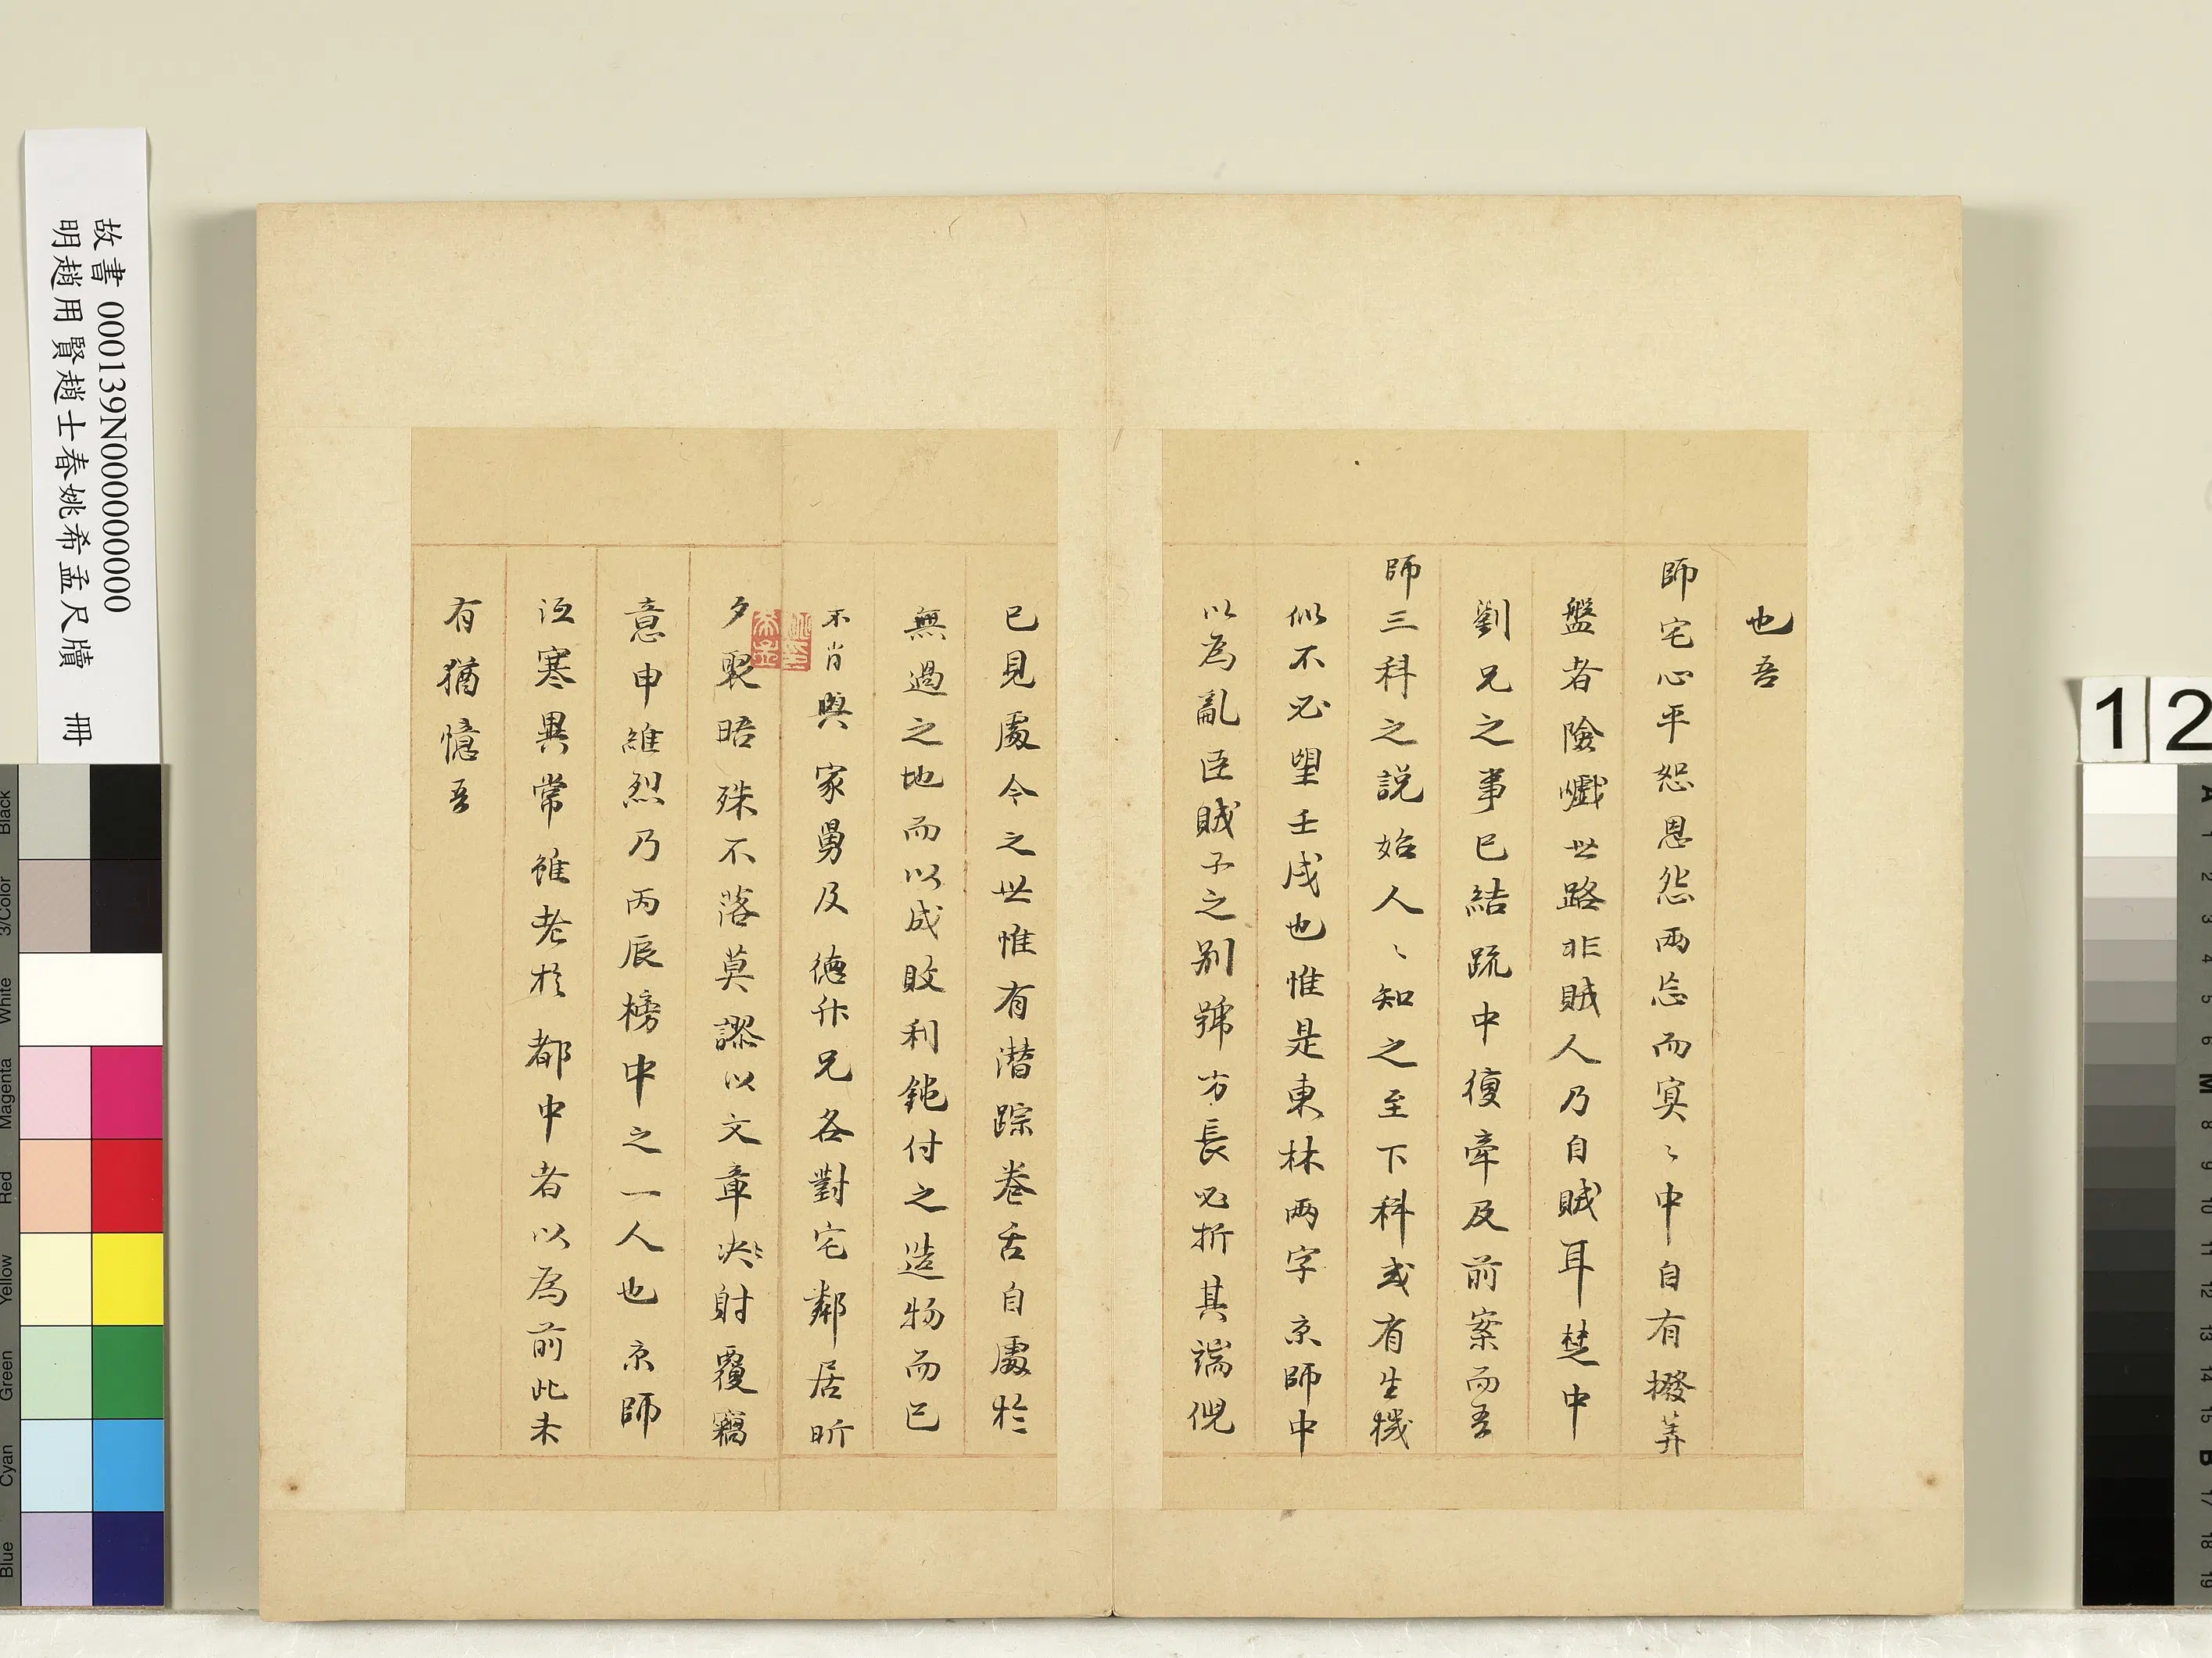 也吾
師宅心平恕恩怨兩忘而寞〻中自有撥筭
盤者險巇世路非賊人乃自賊耳楚中
劉兄之事已結疏中復牽及前案而吾
師三科之説始人〻知之至下科或有生機
似不必望壬戌也惟是東林兩字京師中
以為亂臣賊子之別號方長必折其端倪
已見處今之世惟有潛踪卷舌自處於
無過之地而以成敗利鈍付之造物而已
不肖與家舅及德升兄各對宅鄰居昕
夕聚晤殊不落莫謬以文章决射覆竊
意申維烈乃丙辰榜中之一人也京師
沍寒異常雖老於都中者以為前此未
有猶憶吾
故書 000139N000000000
明趙用賢趙士春姚希孟尺牘 冊
12
Black
3/Color
White
Magenta
Red
Yellow
Green
Cyan
Blue